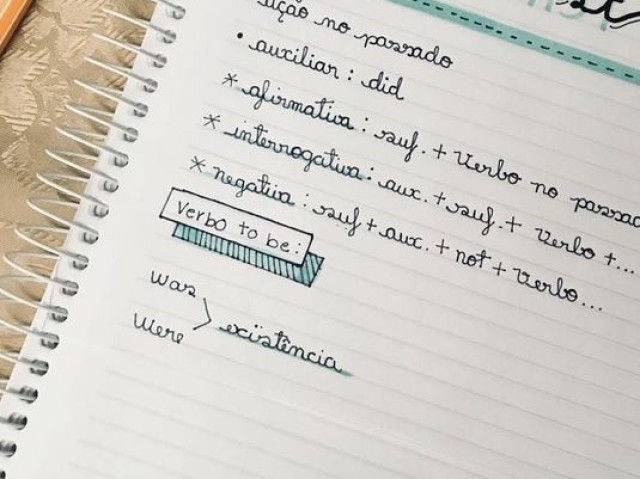 no passado
• auxiliar : did
* afirmativa : suj. + verbo no
* interrogativa : aux. + suj. + verbo +...
* negativa : suj + aux. + not + verbo...
Verbo to be :
was
were
existência